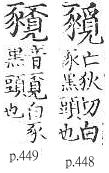 亡狄切白
豕黑頭也
p.448
音覓白豕
黑頭也
p.449